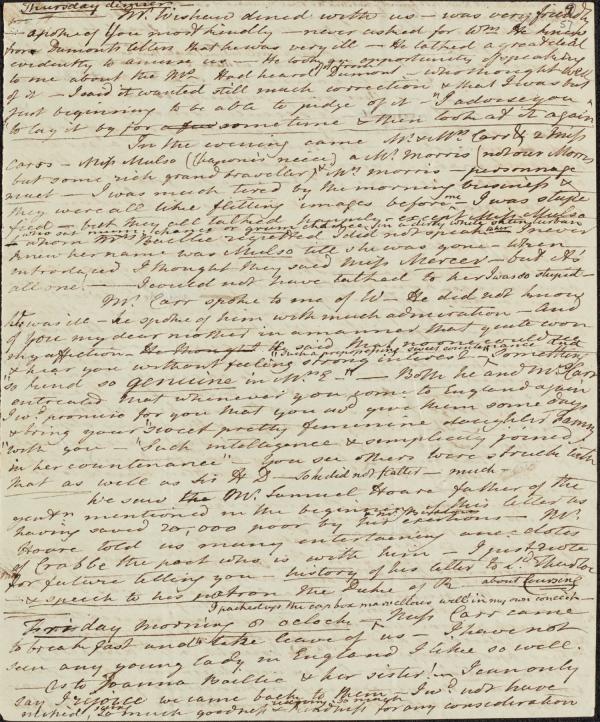 Thursday dinner —
Mr. Wishaw dined with us — was very friendly
spoke of you most kindly — never asked for Wm. He knew
from Dumonts letters that he was very ill — He talked a great deal
evidently to amuse us — He took opportunity of speaking
to me about the Ms. Had heard of it from Dumont — who thought well
of it — I said it wanted still much correction & that I was but
just beginning to be able to judge of it — "I advise you
to lay it by for a few sometime & then look at it again
In the evening came Mr. & Mrs. Carr & 2 Miss
Carrs — Miss Mulso (Chapone's niece) a Mr. Morris (not our Morris
but some rich grand traveller) & Mrs. Morris — personnage
muet — I was much tired by the morning business &
they were all like flitting images before me — I was stupe
fied — but they all talked
— whom Mrs. Baillie regretted I did not I never
knew her name was Mulso till she was gone — When
introduced I thought they said Miss Mercer — but it's
all one. — I could not have talked to her I was so stupid —
Mr. Carr spoke to me of W — He did not know
he was ill — he spoke of him with much admiration — And
of you my dear mother in a manner that quite won
my affection — He thought He said that no one could see
& hear you without feeling strong interest — "Something
"is kind so genuine in Mrs. E" — Both he and Mrs. Carr
entreated that whenever you come to England again
I wd. promise for you that you wd give them some days
& bring your "sweet pretty feminine daughter Fanny
"with you — "Such intelligence & simplicity joined
in her countenance" — You see others were struck with
that as well as Sir H D — so he did not flatter — much —
We saw the Mr. Samuel Hoare father of the
gentn mentioned in the beginning of this letter as
having saved 20,000 poor by his exertions — Mr.
Hoare told us many entertaining anecdotes
of Crabbe the poet who is with him — I just note
for future telling you — history of his letter to Ld. Thurlow
— & speech to his patron the Duke of R. about Coursing
I packed up the cap box marvellous well in my own conceit —
Friday morning 8 oclock — Miss Carr came
to breakfast and take leave of us — I have not
seen any young lady in England I like so well.
— As to Joanna Baillie & her sister! — I can only
say I rejoice we came back to them I wd. not have
missed seeing so much goodness & kindness for any consideration